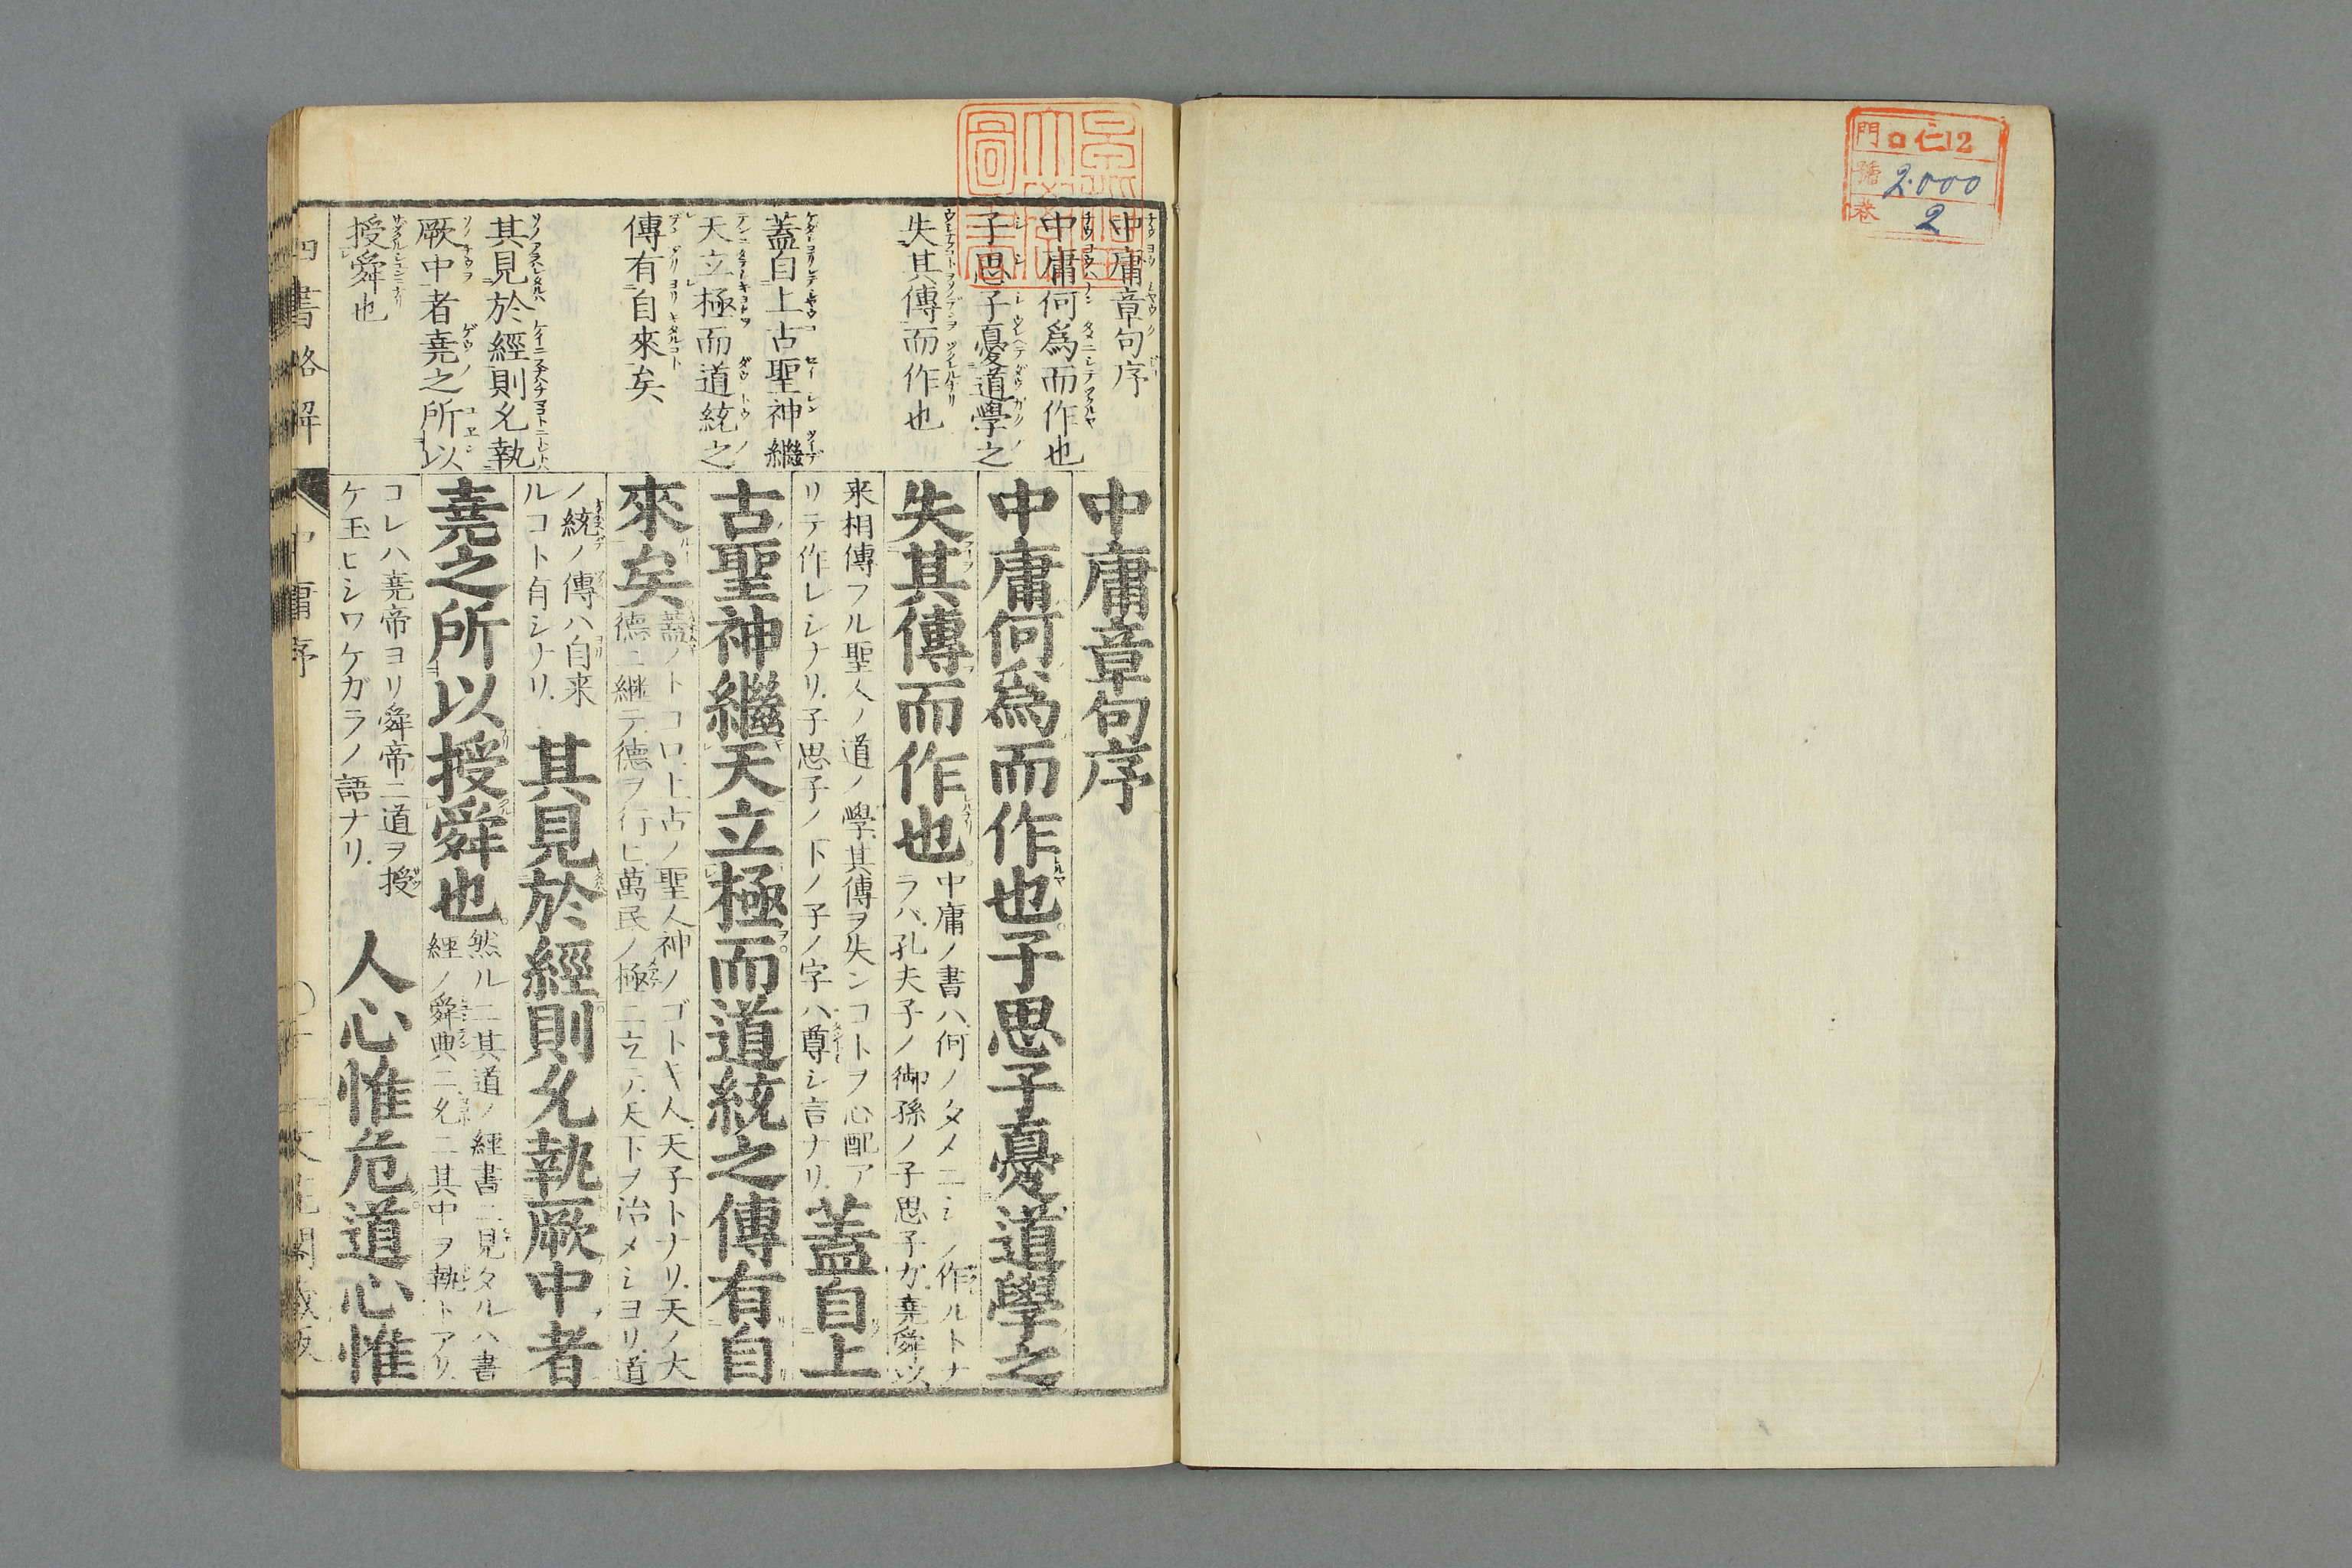 門 ロ仁12
號 2.000
巻 2
中庸章句序
中庸何爲而作也
子思子憂道學之
失其傳而作也
蓋自上古聖神繼
天立極而道統之
傳有自來矣
其見於經則允執
厥中者堯之所以
授舜也
中庸章句序
中庸何爲而作也子思子憂道學之
失其傳而作也
中庸ノ書ハ何ノタメニシテ作ルトナ
ラバ孔夫子ノ御孫ノ子思子ガ堯舜以
来相傳フル聖人ノ道ノ學其傳ヲ失ンコトヲ心配ア
リテ作レシナリ子思子ノ下ノ子ノ字ハ尊シ言ナリ
蓋自上
古聖神繼天立極而道統之傳有自
來矣
蓋ノトコロ上古ノ聖人神ノゴトキ人天子トナリ天ノ大
德ニ継テ德ヲ行ヒ萬民ノ極ニ立テ天下ヲ治メシヨリ道
ノ統ノ傳ハ自来
ルコト有シナリ
其見於經則允執厥中者
堯之所以授舜也
然ルニ其道ノ經書ニ見タルハ書
經ノ舜典ニ允ニ其中ヲ執トアリ
コレハ堯帝ヨリ舜帝ニ道ヲ授
ケ玉ヒシワケガラノ語ナリ
人心惟危道心惟
四書略解
中庸序